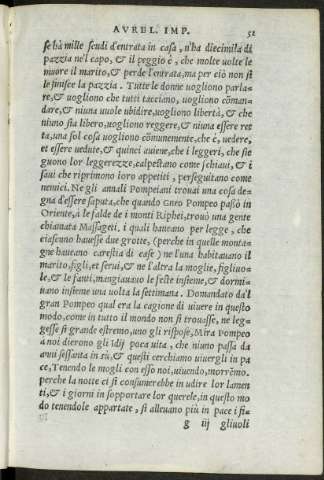 AVREL. IMP. 52
se hà mille scudi d'entrata in casa, n'ha diecimila di
pazzia ne'l capo, & il peggio è, che molte uolte le
muore il marito, & perde l'entrata, ma per ciò non si
le finisce la pazzia. Tutte le donne uogliono parla-
re, & uogliono che tutti tacciano, uogliono cōman-
dare, & niuna uuole ubidire, uogliono libertà, & che
niuno sia libero, uogliono reggere, & niuna essere ret
ta, una sol cosa uogliono cōmunemente, che è, uedere,
et essere uedute, & quinci auiene, che i leggeri, che sie
guono lor leggerezze, calpestano come schiaui, & i
saui che riprimono loro appetiti, perseguitano come
nemici. Ne gli annali Pompeiani trouai una cosa de-
gna d'essere saputa, che quando Gneo Pompeo passò in
Oriente, à le falde de i monti Riphei, trouò una gente
chiamata Massageti, i quali haueano per legge, che
ciascuno hauesse due grotte, (perche in quelle monta-
gne haueano carestia di case) ne l'una habitauano il
marito, figli, et serui, & ne l'altra la moglie, figliuo-
le, & le fanti, mangiauano le feste insieme, & dormi-
uano insieme una uolta la settimana. Domandato da'l
gran Pompeo qual era la cagione di uiuere in questo
modo, come in tutto il mondo non si trouasse, ne leg-
gesse si grande estremo, uno gli rispose, Mira Pompeo
à noi dierono gli Idij poca uita, che niuno passa da
anni sessanta in sù, & questi cerchiamo uiuergli in pa
ce, Tenendo le mogli con esso noi, uiuendo, morrēmo.
perche la notte ci si consumerebbe in udire lor lamen
ti, & i giorni in sopportare lor querele, in questo mo
do tenendole appartate, si alleuano più in pace i fi-
g iij gliuoli